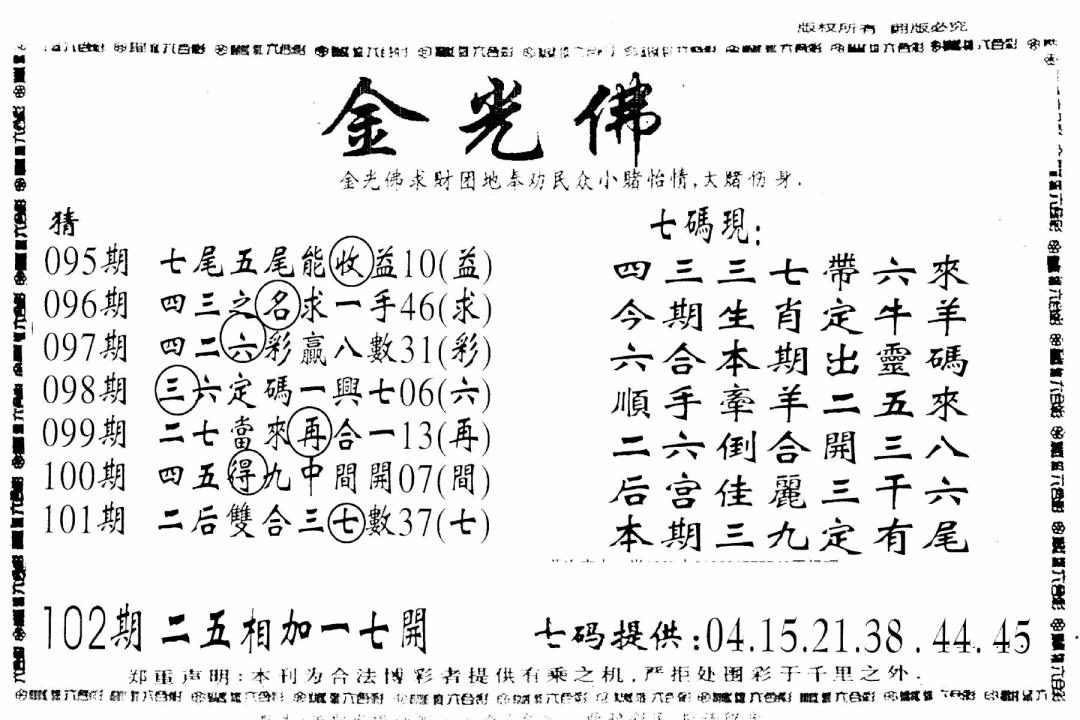 版权所有 翻版必究
金光佛
金光佛求财团地奉劝民众小賭怡情,大賭伤身.
猜
095期 七尾五尾能收益10(益)
096期 四三之名求一手46(求)
097期 四二六彩贏八數31(彩)
098期 三六定碼一興七06(六)
099期 二七當來再合一13(再)
100期 四五得九中間開07(間)
101期 二后雙合三七數37(七)
七碼現:
四三三七帶六來
今期生肖定牛羊
六合本期出靈碼
順手牽羊二五來
二六倒合開三八
后宮佳麗三千六
本期三九定有尾
102期 二五相加一七開
七码提供:04.15.21.38.44.45
郑重声明:本刊为合法博彩者提供有乘之机,严拒处圈彩于千里之外.